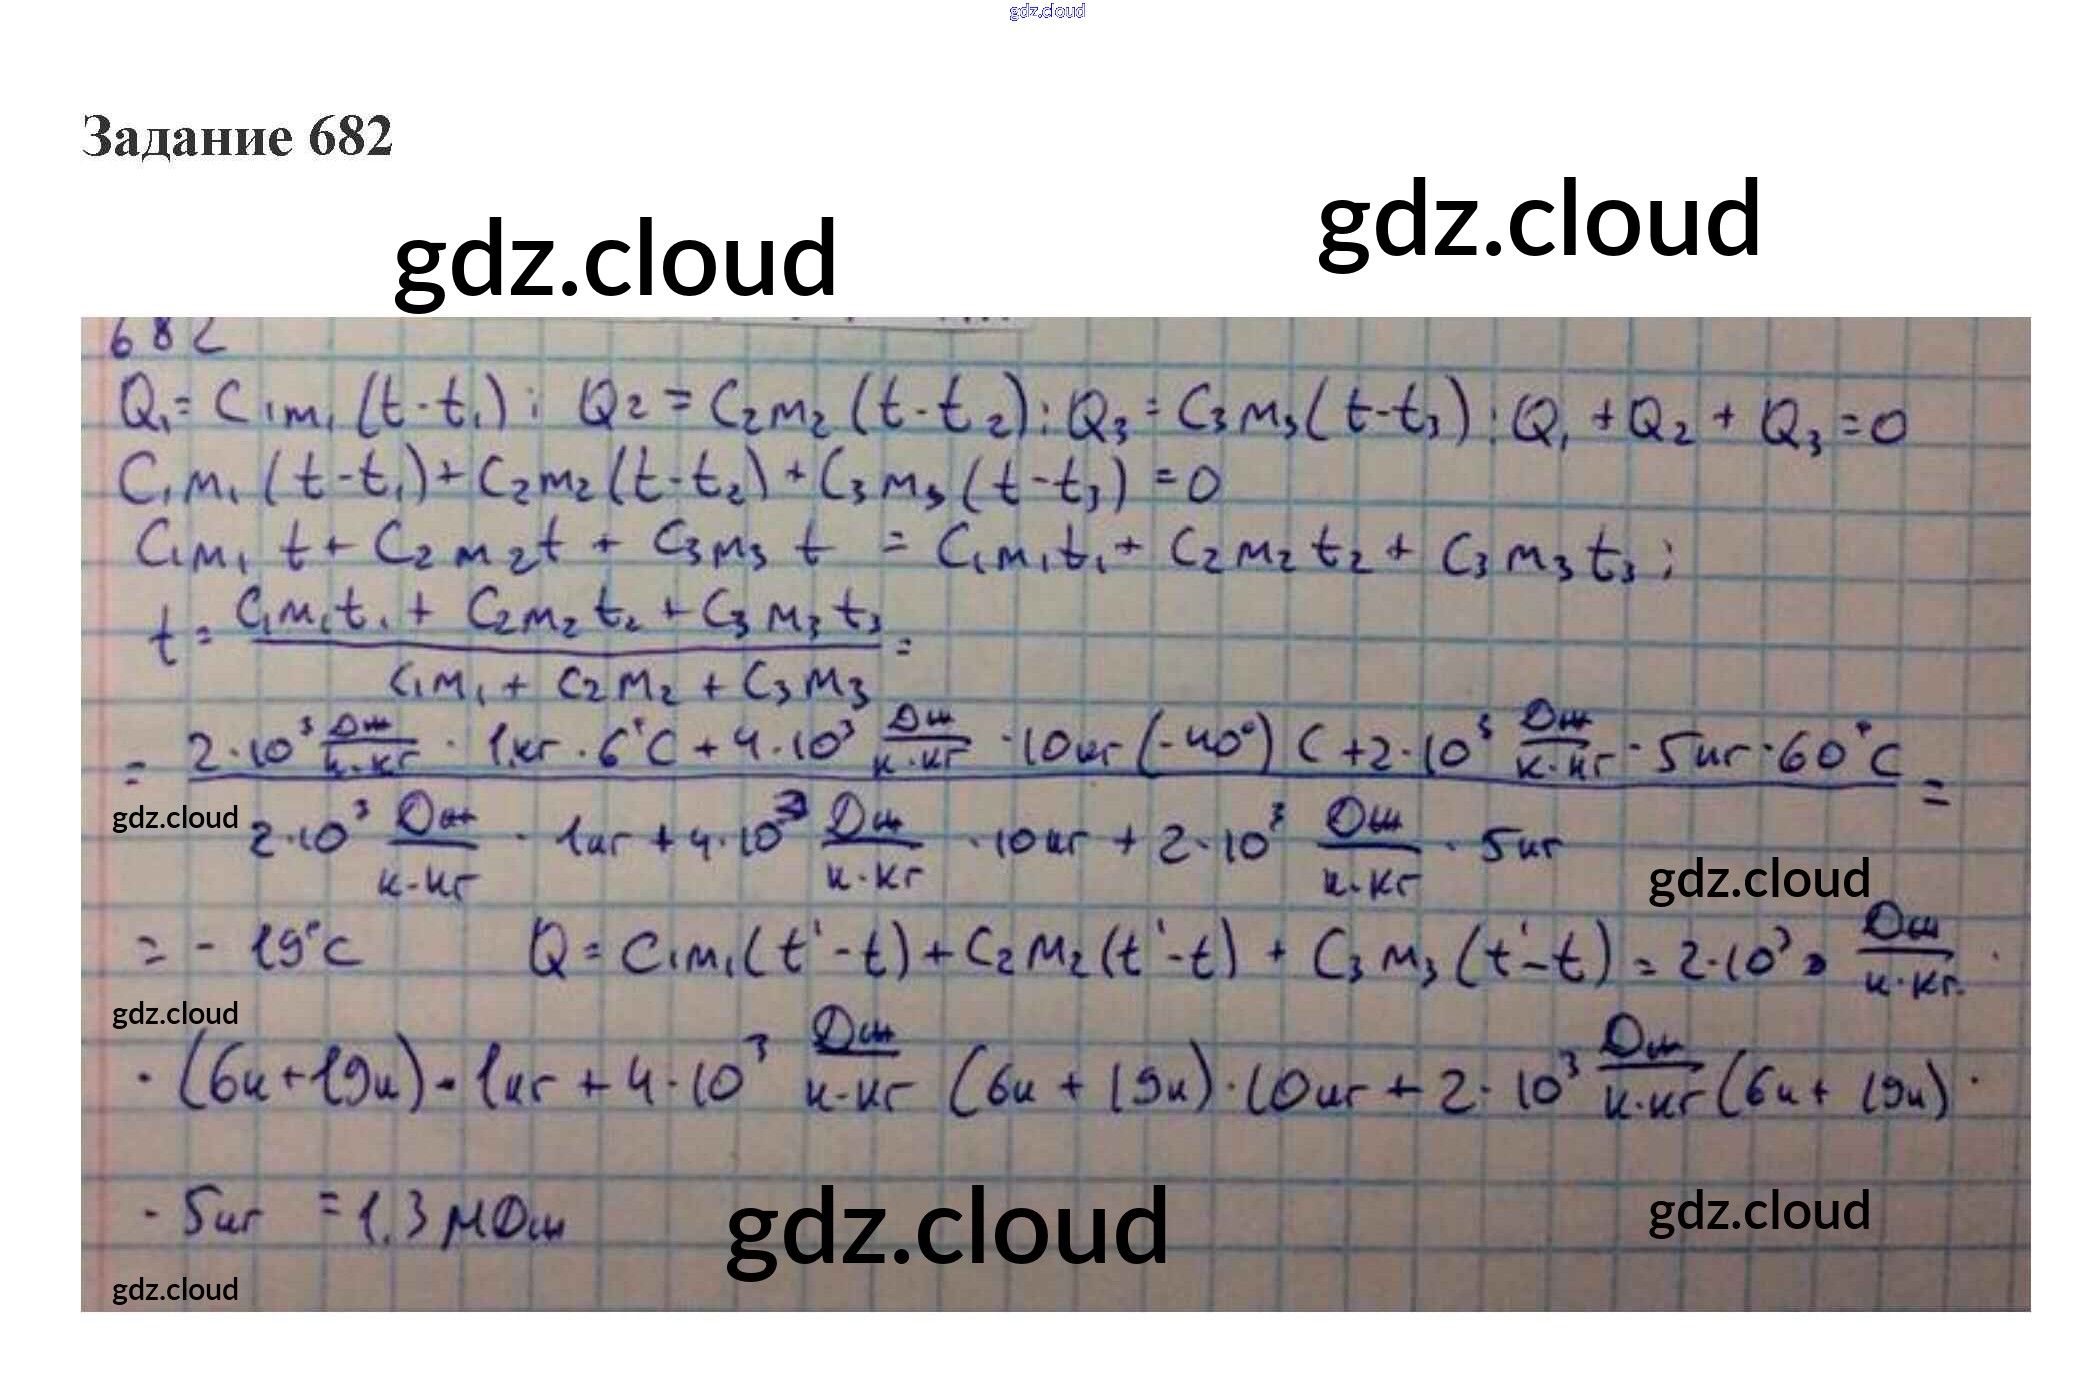 gdz.cloud
Задание 682
gdz.cloud
gdz.cloud
682
Q₁ = C₁m₁(t - t₁); Q₂ = C₂m₂(t - t₂); Q₃ = C₃m₃(t - t₃); Q₁ + Q₂ + Q₃ = 0
C₁m₁(t - t₁) + C₂m₂(t - t₂) + C₃m₃(t - t₃) = 0
C₁m₁t + C₂m₂t + C₃m₃t = C₁m₁t₁ + C₂m₂t₂ + C₃m₃t₃;
t = (C₁m₁t₁ + C₂m₂t₂ + C₃m₃t₃) / (C₁m₁ + C₂m₂ + C₃m₃) =
= (2·10³ Дж/к·кг · 1кг · 6°C + 4·10³ Дж/к·кг · 10кг (-40°) C + 2·10³ Дж/к·кг · 5кг · 60°C) / (2·10³ Дж/к·кг · 1кг + 4·10³ Дж/к·кг · 10кг + 2·10³ Дж/к·кг · 5кг) =
gdz.cloud
gdz.cloud
= - 19°C Q = C₁m₁(t' - t) + C₂m₂(t' - t) + C₃m₃(t' - t) = 2·10³ · Дж/к·кг ·
gdz.cloud
· (6к + 19к) · 1кг + 4·10³ Дж/к·кг (6к + 19к) · 10кг + 2·10³ Дж/к·кг (6к + 19к) ·
· 5кг = 1,3 МДж
gdz.cloud
gdz.cloud
gdz.cloud